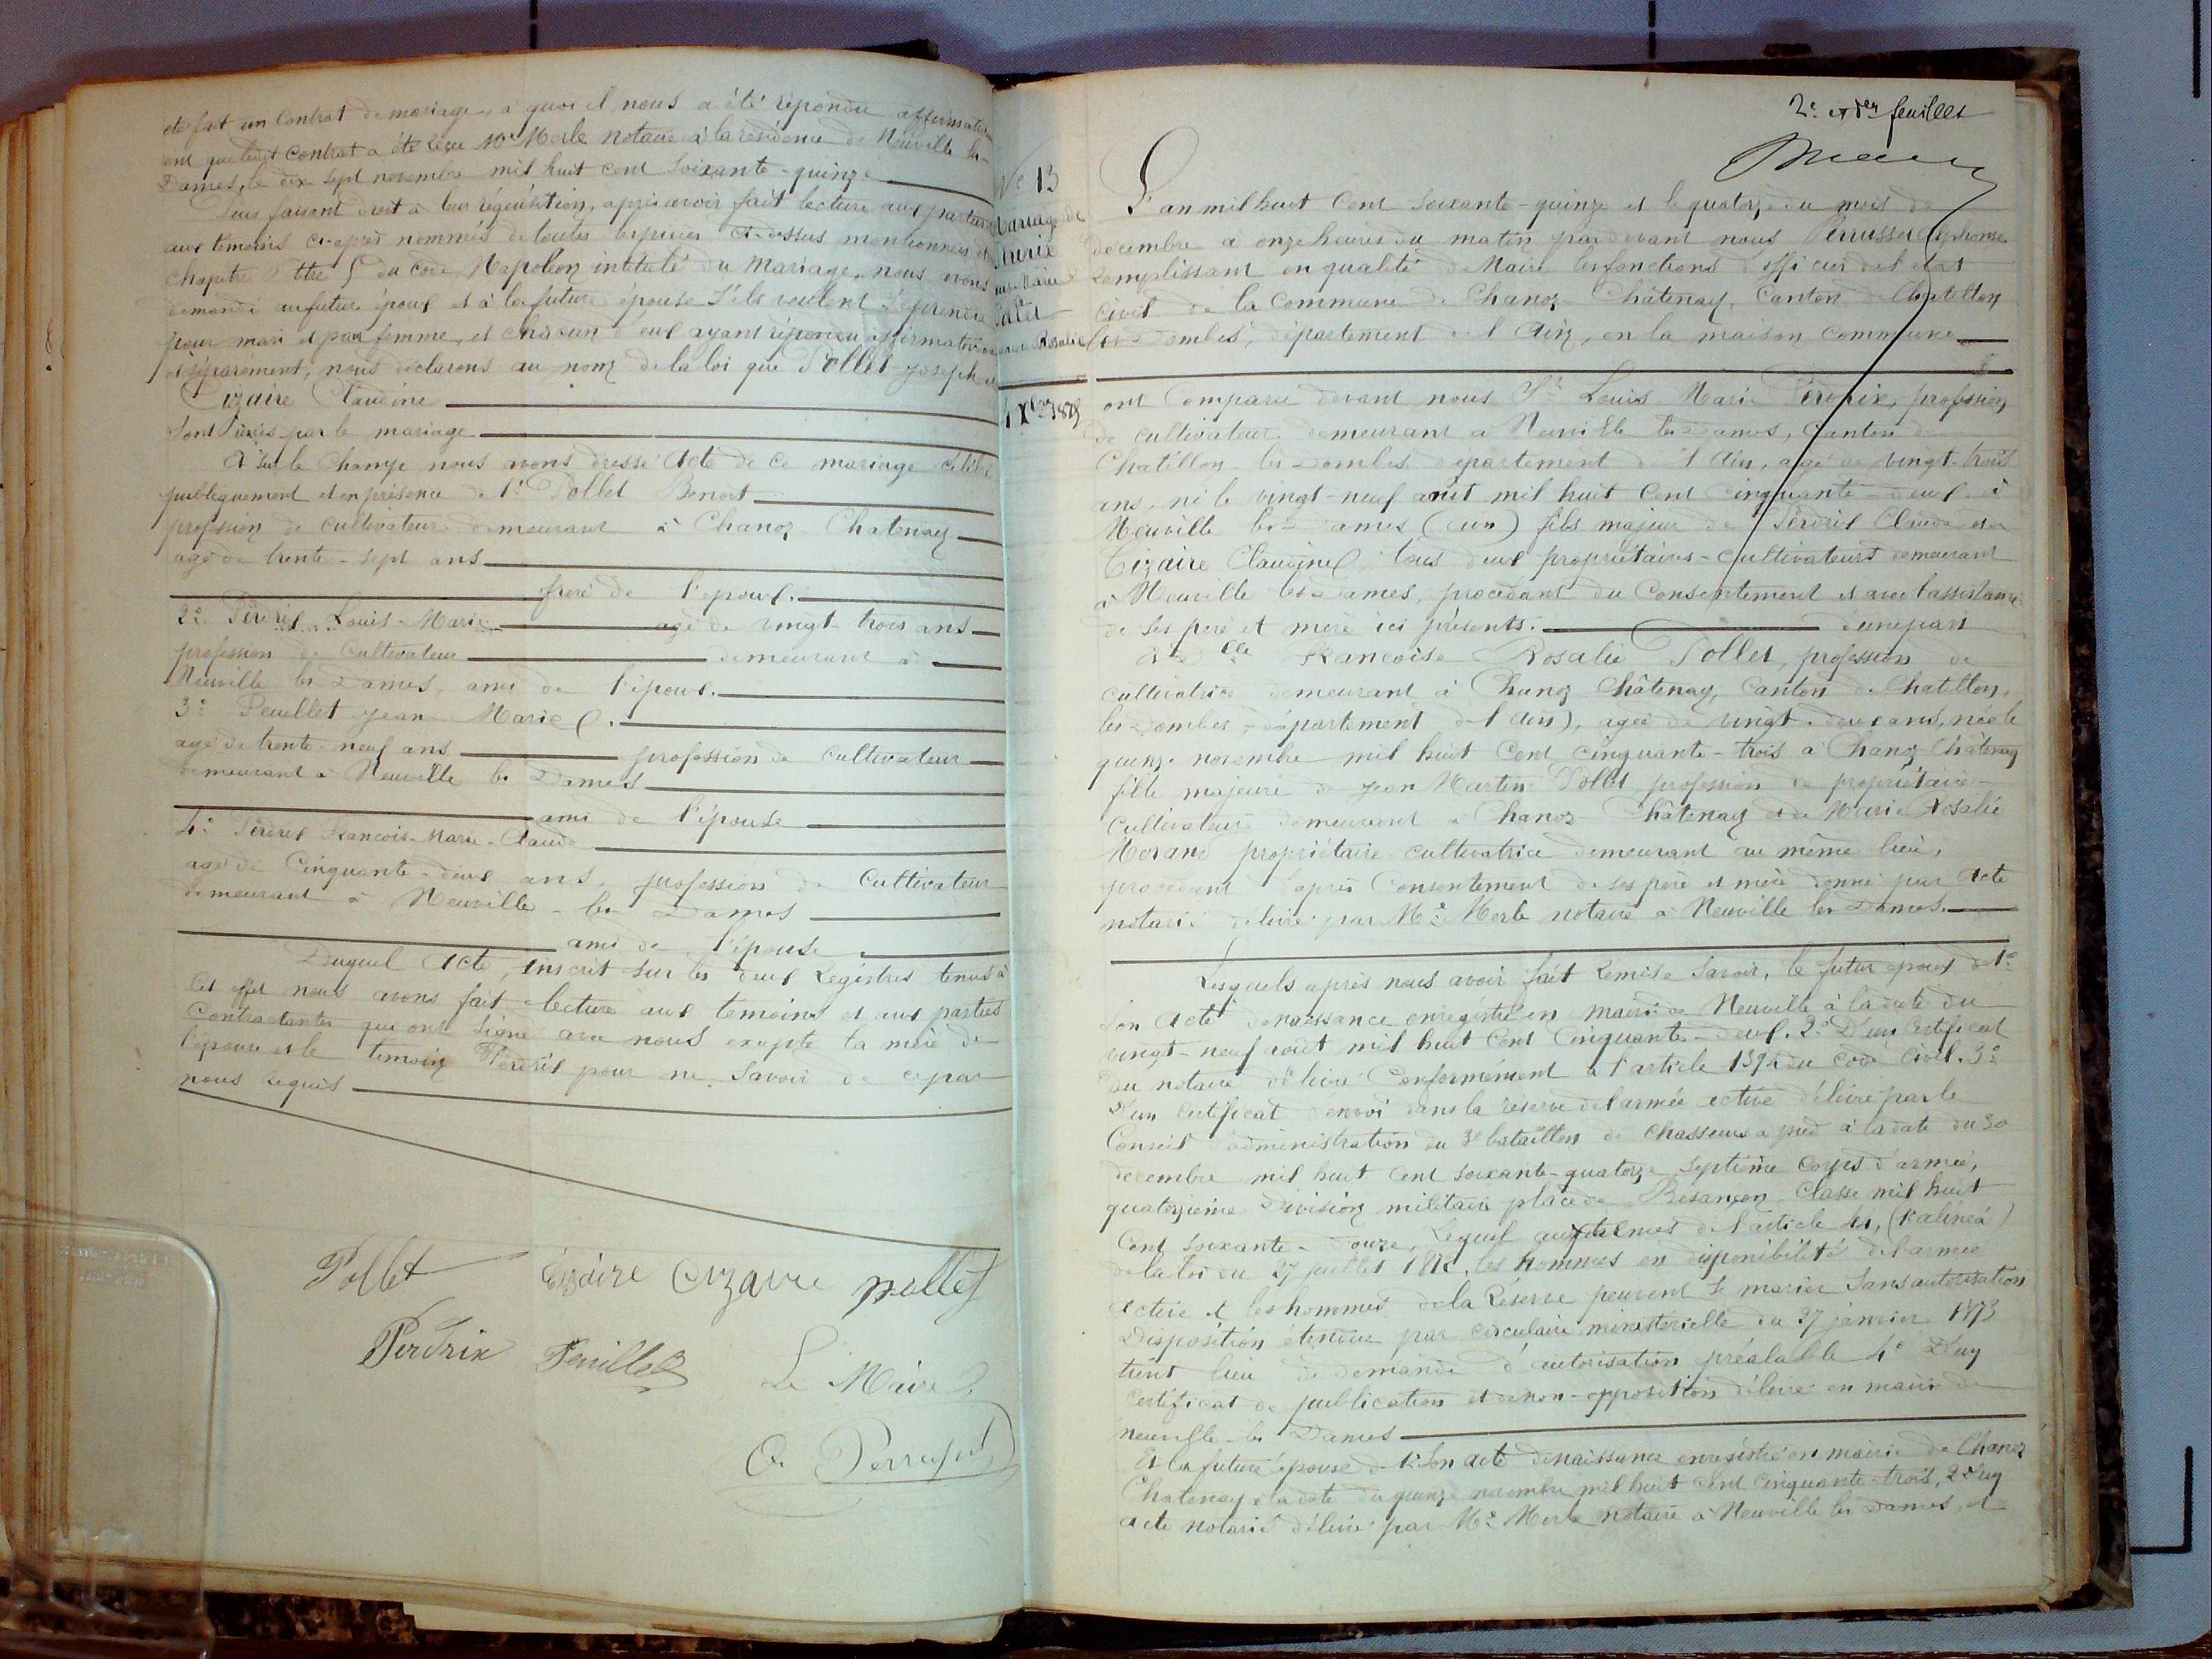 été fait un contrat de mariage, a quoi il nous a été répondu affirmative
ent que ledit contrat a été reçu Me Merle notaire à la résidence de Neuville les
Dames, le dix sept novembre mil huit cent soixante-quinze
Puis faisant droit à leur réquisition, après avoir fait lecture aux parties
aux témoins ci-après nommés de toutes les pièces ci-dessus mentionnées et
chapitre titre 5 du code Napoléon intitulé du Mariage, nous avons
demandé au futur époux et à la future épouse s'ils veulent se prendre
pour mari et pour femme, et chacun d'eux ayant répondu affirmativement
et séparément, nous déclarons au nom de la loi que Pollet Joseph et
Cizaire Claudine
sont unis par le mariage
Et sur le champ nous avons dressé acte de ce mariage célébré
publiquement et en présence de 1° Pollet Benoit
profession de cultivateur demeurant à Chanoz Chatenay
agé de trente-sept ans
frère de l'époux.
2° Perdrix Louis-Marie agé de vingt-trois ans
profession de cultivateur demeurant à
Neuville les Dames, ami de l'époux.
3° Feuillet Jean Marie
agé de trente-neuf ans profession de cultivateur
demeurant à Neuville les Dames
ami de l'épouse
4° Perdrix François-Marie-Claude
agé de cinquante-deux ans, profession de cultivateur
demeurant à Neuville-les Dames
ami de l'épouse
Duquel acte, inscrit sur les deux registres tenus à
cet effet nous avons fait lecture aux témoins et aux parties
contractantes qui ont signé avec nous excepté la mère de
l'époux et le témoin Perdrix pour ne savoir de ce par
nous requis
Pollet Cizaire Cizaire pollet
Perdrix Feuillet
Le Maire
Perrusset
N° 13
Mariage de
Perdrix
Louis Marie
Pollet
Rosalie
Xbre 1875
2e et der feuillet
L'an mil huit cent soixante-quinze et le quatorze du mois de
décembre à onze heures du matin par devant nous Perrusset Alphonse
remplissant en qualité de Maire les fonctions d'officier de l'état
civil de la commune de Chanoz-Châtenay, canton de Chatillon
les-Dombes, département de l'Ain, en la maison commune
ont comparu devant nous Sr Louis Marie Perdrix, profession
de cultivateur demeurant à Neuville les Dames, canton de
Chatillon-les-Dombes département de l'Ain, agé de vingt-trois
ans, né le vingt-neuf août mil huit cent cinquante-deux à
Neuville les Dames (Ain) fils majeur de Perdrix Claude et de
Cizaire Claudine, tous deux propriétaires-cultivateurs demeurant
à Neuville les Dames, procédant du consentement et avec l'assistance
de ses père et mère ici présents. d'une part
Et Dlle Francoise Rosalie Pollet, profession de
cultivatrice demeurant à Chanoz-Châtenay, canton de Chatillon,
les-Dombes, département de l'Ain), agée de vingt-deux ans, née le
quinze novembre mil huit cent cinquante-trois à Chanoz-Châtenay
fille majeure de Jean Martin Pollet profession de propriétaire-
cultivateur demeurant à Chanoz-Châtenay et de Marie Rosalie
Morand propriétaire cultivatrice demeurant au même lieu,
procédant après consentement de ses père et mère donné par acte
notarié délivré par Me Merle notaire à Neuville les Dames.
Lesquels après nous avoir fait remise savoir, le futur époux de 1°
son acte de naissance enregistré en mairie de Neuville à la date du
vingt-neuf août mil huit cent cinquante-deux. 2° D'un certificat
du notaire délivré conformément à l'article 1394 du code civil. 3°
D'un certificat d'envoi dans la réserve de l'armée active délivré par le
Conseil d'administration du 3e bataillon de chasseurs à pied à la date du 30
décembre mil huit cent soixante-quatorze, septième corps d'armée,
quatorzième division militaire place de Besançon, classe mil huit
cent soixante-douze, lequel aux termes de l'article 44, (alinéa)
de la loi du 27 juillet 1872, les hommes en disponibilité de l'armée
active et les hommes de la réserve peuvent se marier sans autorisation
Disposition étendue par circulaire ministérielle du 27 janvier 1873
tient lieu de demande d'autorisation préalable 4° D'un
certificat de publication et de non-opposition délivré en mairie de
neuville-les Dames
Et la future épouse de 1° son acte de naissance enregistré en mairie de Chanoz
Chatenay à la date du quinze novembre mil huit cent cinquante-trois, 2° D'un
acte notarié délivré par Me Merle notaire à Neuville les Dames, et